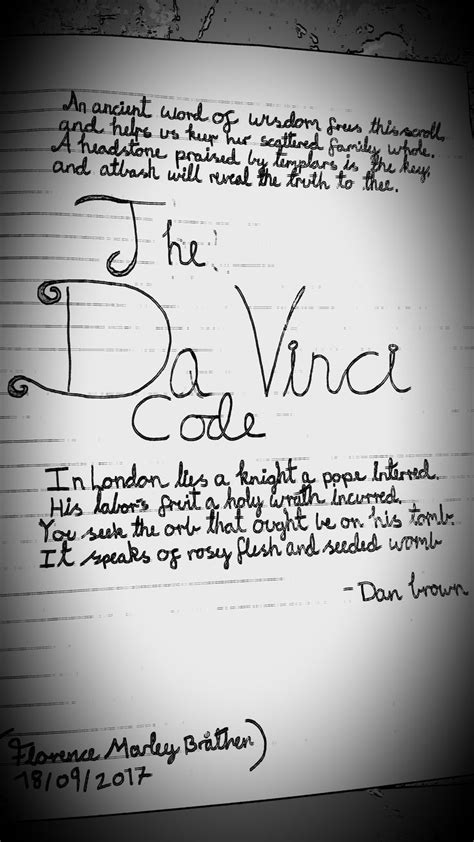 An ancient word of wisdom frees this scroll
and helps us keep her scattered family whole.
A headstone praised by templars is the key,
and atbash will reveal the truth to thee.
The
Da Vinci
Code
In London lies a knight a pope interred.
His labor's fruit a holy wrath incurred.
You seek the orb that ought be on his tomb.
It speaks of rosey flesh and seeded womb
- Dan brown
(Florence Marley Bråthen)
18/09/2017